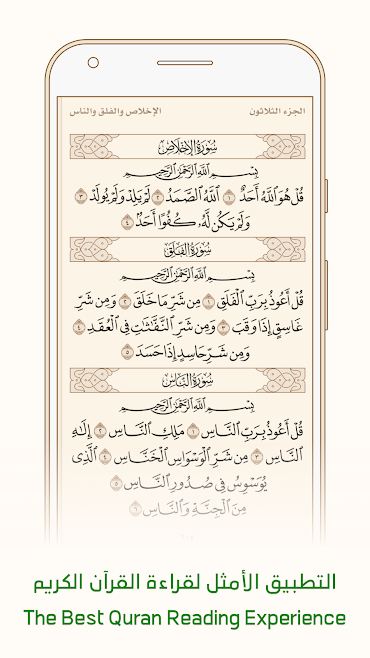 الجزء الثلاثون
الإخلاص والفلق والناس
سُورَةُ الإِخْلَاصِ
بِسْمِ ٱللَّهِ ٱلرَّحْمَٰنِ ٱلرَّحِيمِ
قُلْ هُوَ ٱللَّهُ أَحَدٌ ١ ٱللَّهُ ٱلصَّمَدُ ٢ لَمْ يَلِدْ وَلَمْ يُولَدْ ٣
وَلَمْ يَكُن لَّهُۥ كُفُوًا أَحَدٌۢ ٤
سُورَةُ الفَلَقِ
بِسْمِ ٱللَّهِ ٱلرَّحْمَٰنِ ٱلرَّحِيمِ
قُلْ أَعُوذُ بِرَبِّ ٱلْفَلَقِ ١ مِن شَرِّ مَا خَلَقَ ٢ وَمِن شَرِّ
غَاسِقٍ إِذَا وَقَبَ ٣ وَمِن شَرِّ ٱلنَّفَّٰثَٰتِ فِى ٱلْعُقَدِ ٤
وَمِن شَرِّ حَاسِدٍ إِذَا حَسَدَ ٥
سُورَةُ النَّاسِ
بِسْمِ ٱللَّهِ ٱلرَّحْمَٰنِ ٱلرَّحِيمِ
قُلْ أَعُوذُ بِرَبِّ ٱلنَّاسِ ١ مَلِكِ ٱلنَّاسِ ٢ إِلَٰهِ
ٱلنَّاسِ ٣ مِن شَرِّ ٱلْوَسْوَاسِ ٱلْخَنَّاسِ ٤ ٱلَّذِى
يُوَسْوِسُ فِى صُدُورِ ٱلنَّاسِ ٥
مِنَ ٱلْجِنَّةِ وَٱلنَّاسِ ٦
التطبيق الأمثل لقراءة القرآن الكريم
The Best Quran Reading Experience